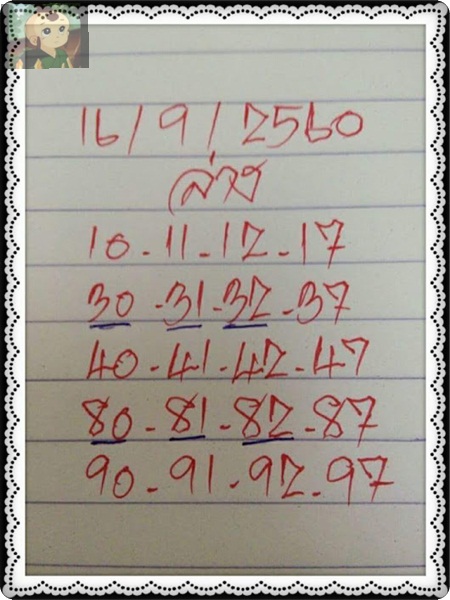 16/9/2560
ล่าง
10-11-12-17
30-31-32-37
40-41-42-47
80-81-82-87
90-91-92-97